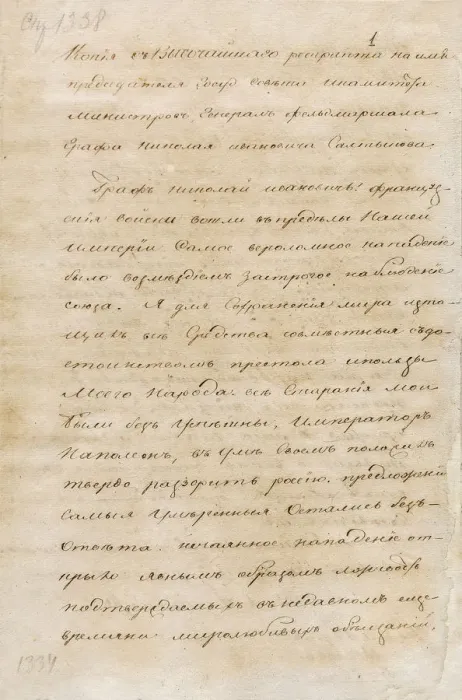 1338
1
Копія съ Высочайшаго рескрипта на имя
председателя Госуд. совѣта и комитета
Министровъ, Генералъ Фельдмаршала
Графа Николая Ивановича Салтыкова
Графъ Николай Ивановичь! Француз-
скія войски вошли въ пределы Нашей
Имперіи Самое вероломное нападеніе
было возмездіемъ за строгое наблюденіе
союза. Я для Сохраненія мира исто-
щилъ все Средства совмѣстныя съ до-
стоинствомъ престола и пользы
Моего Народа. всѣ Старанія Мои
были безъ Успѣшны, Императоръ
Наполеонъ, въ Умѣ Своемъ положилъ
твердо разорить россію. предложенія
самыя Умѣренныя Остались безъ
Ответа. нечаянное нападеніе от-
крыло явнымъ образомъ лживость
подтверждаемыхъ въ недавномъ еще
времяни миролюбивыхъ обещаній,
1334